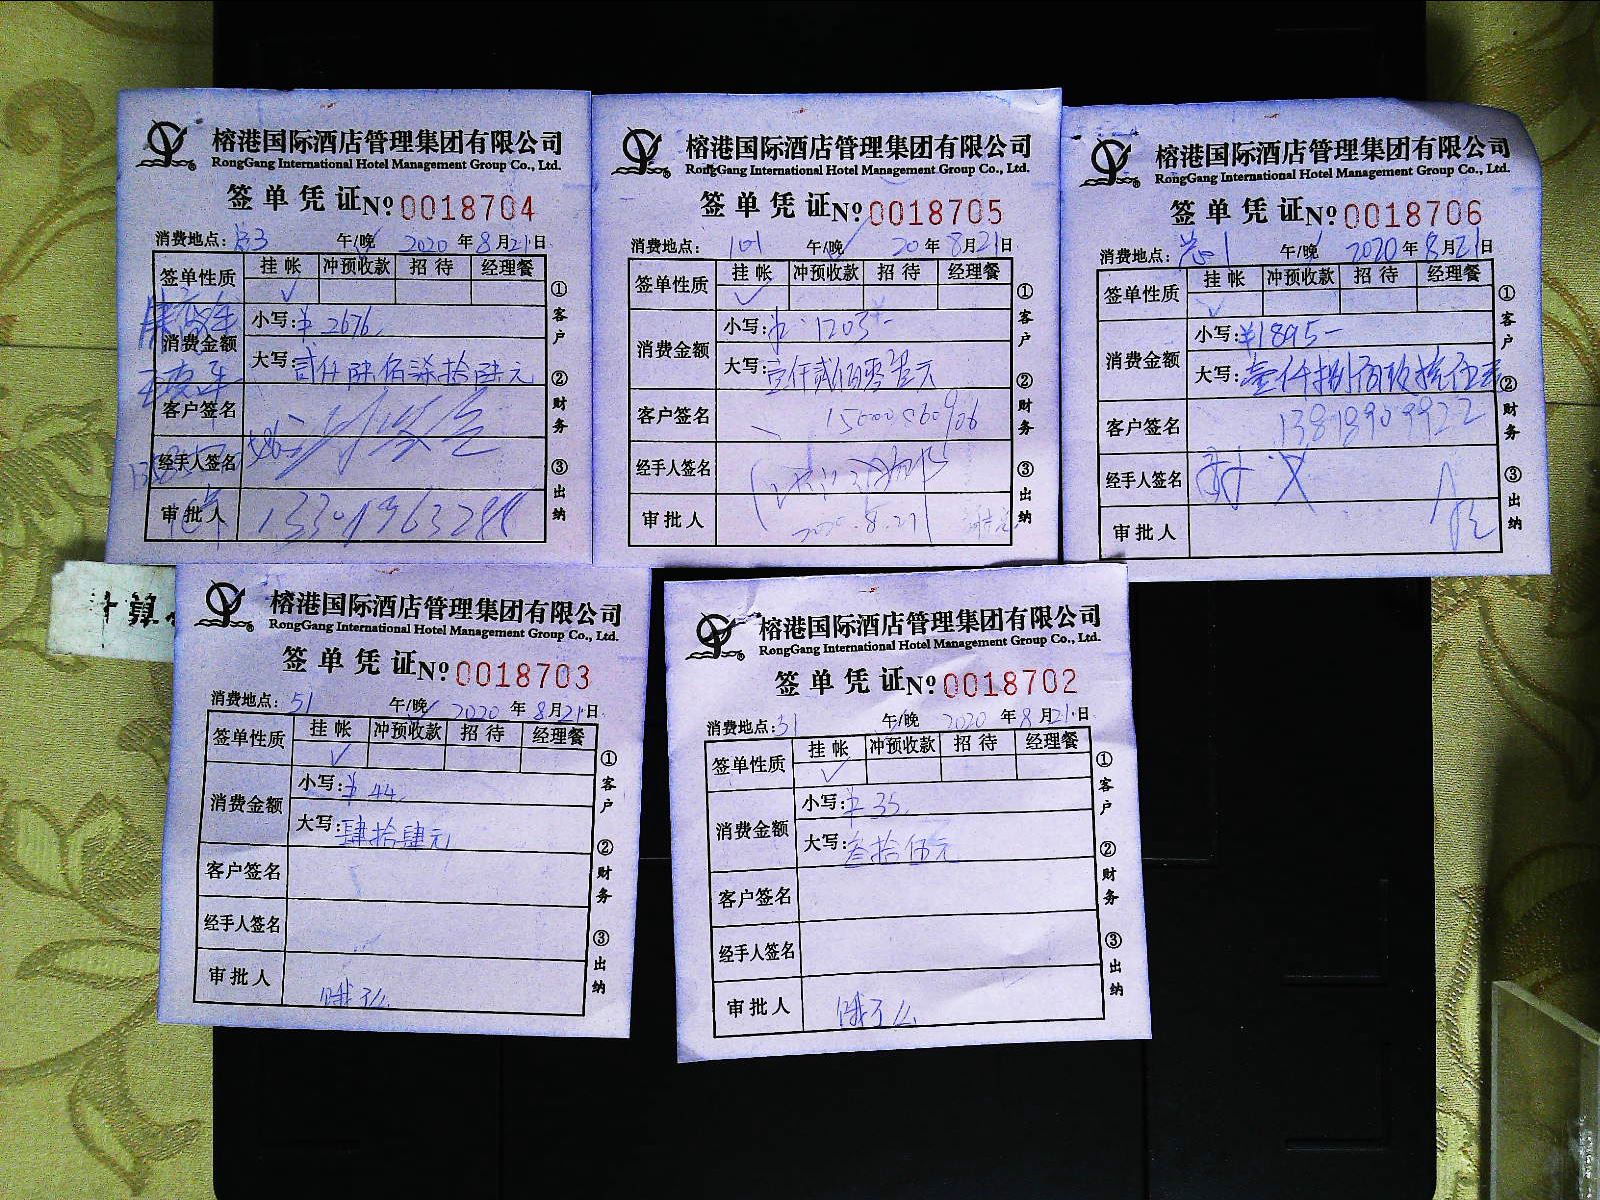 榕港国际酒店管理集团有限公司
RongGang International Hotel Management Group Co., Ltd.
签单凭证 №0018704
消费地点: 午/晚 2020年8月21日
签单性质 挂帐 冲预收款 招待 经理餐
消费金额 小写:¥2676.
大写:贰仟陆佰柒拾陆元
客户签名
经手人签名
审批人
①客户 ②财务 ③出纳
榕港国际酒店管理集团有限公司
RongGang International Hotel Management Group Co., Ltd.
签单凭证 №0018705
消费地点: 101 午/晚 20年8月21日
签单性质 挂帐 冲预收款 招待 经理餐
消费金额 小写:¥1203-
大写:壹仟贰佰零叁元
客户签名
经手人签名
审批人 2020.8.21
①客户 ②财务 ③出纳
榕港国际酒店管理集团有限公司
RongGang International Hotel Management Group Co., Ltd.
签单凭证 №0018706
消费地点: 午/晚 2020年8月21日
签单性质 挂帐 冲预收款 招待 经理餐
消费金额 小写:¥1895-
大写:壹仟捌佰玖拾伍元
客户签名 13818909922
经手人签名
审批人
①客户 ②财务 ③出纳
计算
榕港国际酒店管理集团有限公司
RongGang International Hotel Management Group Co., Ltd.
签单凭证 №0018703
消费地点: 51 午/晚 2020年8月21日
签单性质 挂帐 冲预收款 招待 经理餐
消费金额 小写:¥44.
大写:肆拾肆元
客户签名
经手人签名
审批人 饿了么
①客户 ②财务 ③出纳
榕港国际酒店管理集团有限公司
RongGang International Hotel Management Group Co., Ltd.
签单凭证 №0018702
消费地点: 31 午/晚 2020年8月21日
签单性质 挂帐 冲预收款 招待 经理餐
消费金额 小写:¥35.
大写:叁拾伍元
客户签名
经手人签名
审批人 饿了么
①客户 ②财务 ③出纳